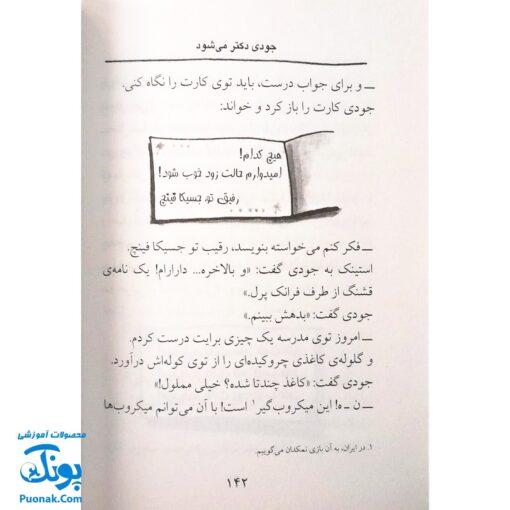 جودی دکتر می‌شود
ــ و برای جواب درست، باید توی کارت را نگاه کنی.
جودی کارت را باز کرد و خواند:
هیچ کدام!
امیدوارم حالت زود خوب شود!
رفیق تو جسیکا فینچ
ــ فکر کنم می‌خواسته بنویسد، رقیب تو جسیکا فینچ.
استینک به جودی گفت: «و بالاخره... دارارام! یک نامه‌ی
قشنگ از طرف فرانک پرل.»
جودی گفت: «بدهش ببینم.»
ــ امروز توی مدرسه یک چیزی برایت درست کردم.
و گلوله‌ی کاغذی چروکیده‌ای را از توی کوله‌اش درآورد.
جودی گفت: «کاغذ چندتا شده؟ خیلی مملول!»
ــ ن ـ ه! این میکروب‌گیر۱ است! با آن می‌توانم میکروب‌ها
۱. در ایران، به آن بازی نمکدان می‌گوییم.
۱۴۲
محصولات آموزشی
پونک
Puonak.Com